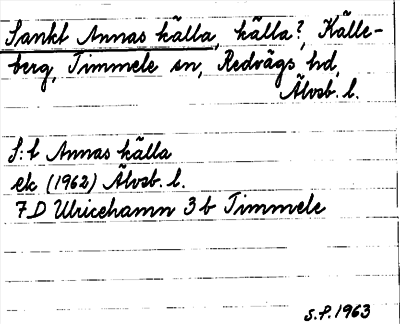 Sankt Annas källa, källa?, Källe-
berg, Timmele sn, Redvägs hd,
Älvsb. l.
S:t Annas källa
ek (1962) Älvsb. l.
7D Ulricehamn 3b Timmele
S.P. 1963